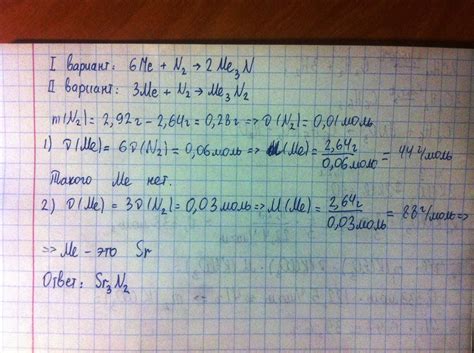 I вариант: 6Me + N₂ → 2Me₃N
II вариант: 3Me + N₂ → Me₃N₂
m(N₂) = 2,92г - 2,64г = 0,28г => ϑ(N₂) = 0,01моль
1) ϑ(Me) = 6ϑ(N₂) = 0,06моль => M(Me) = 2,64г / 0,06моль = 44 г/моль
Такого Me нет.
2) ϑ(Me) = 3ϑ(N₂) = 0,03моль => M(Me) = 2,64г / 0,03моль = 88 г/моль =>
=> Me - это Sr
Ответ: Sr₃N₂